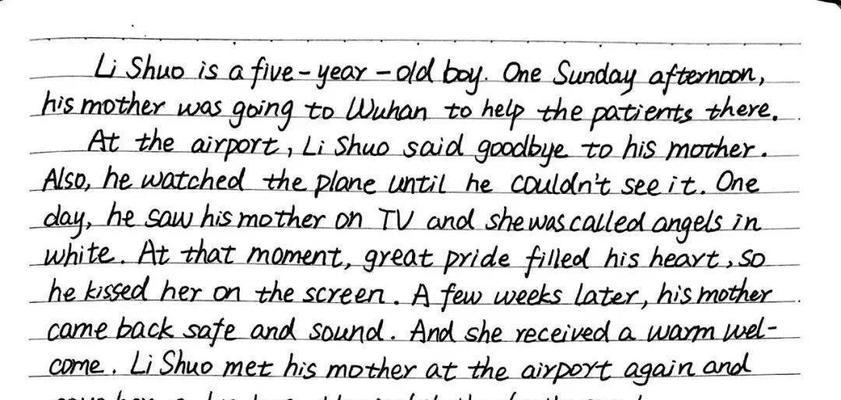 Li Shuo is a five-year-old boy. One Sunday afternoon,
his mother was going to Wuhan to help the patients there.
At the airport, Li Shuo said goodbye to his mother.
Also, he watched the plane until he couldn't see it. One
day, he saw his mother on TV and she was called angels in
white. At that moment, great pride filled his heart, so
he kissed her on the screen. A few weeks later, his mother
came back safe and sound. And she received a warm wel-
come. Li Shuo met his mother at the airport again and